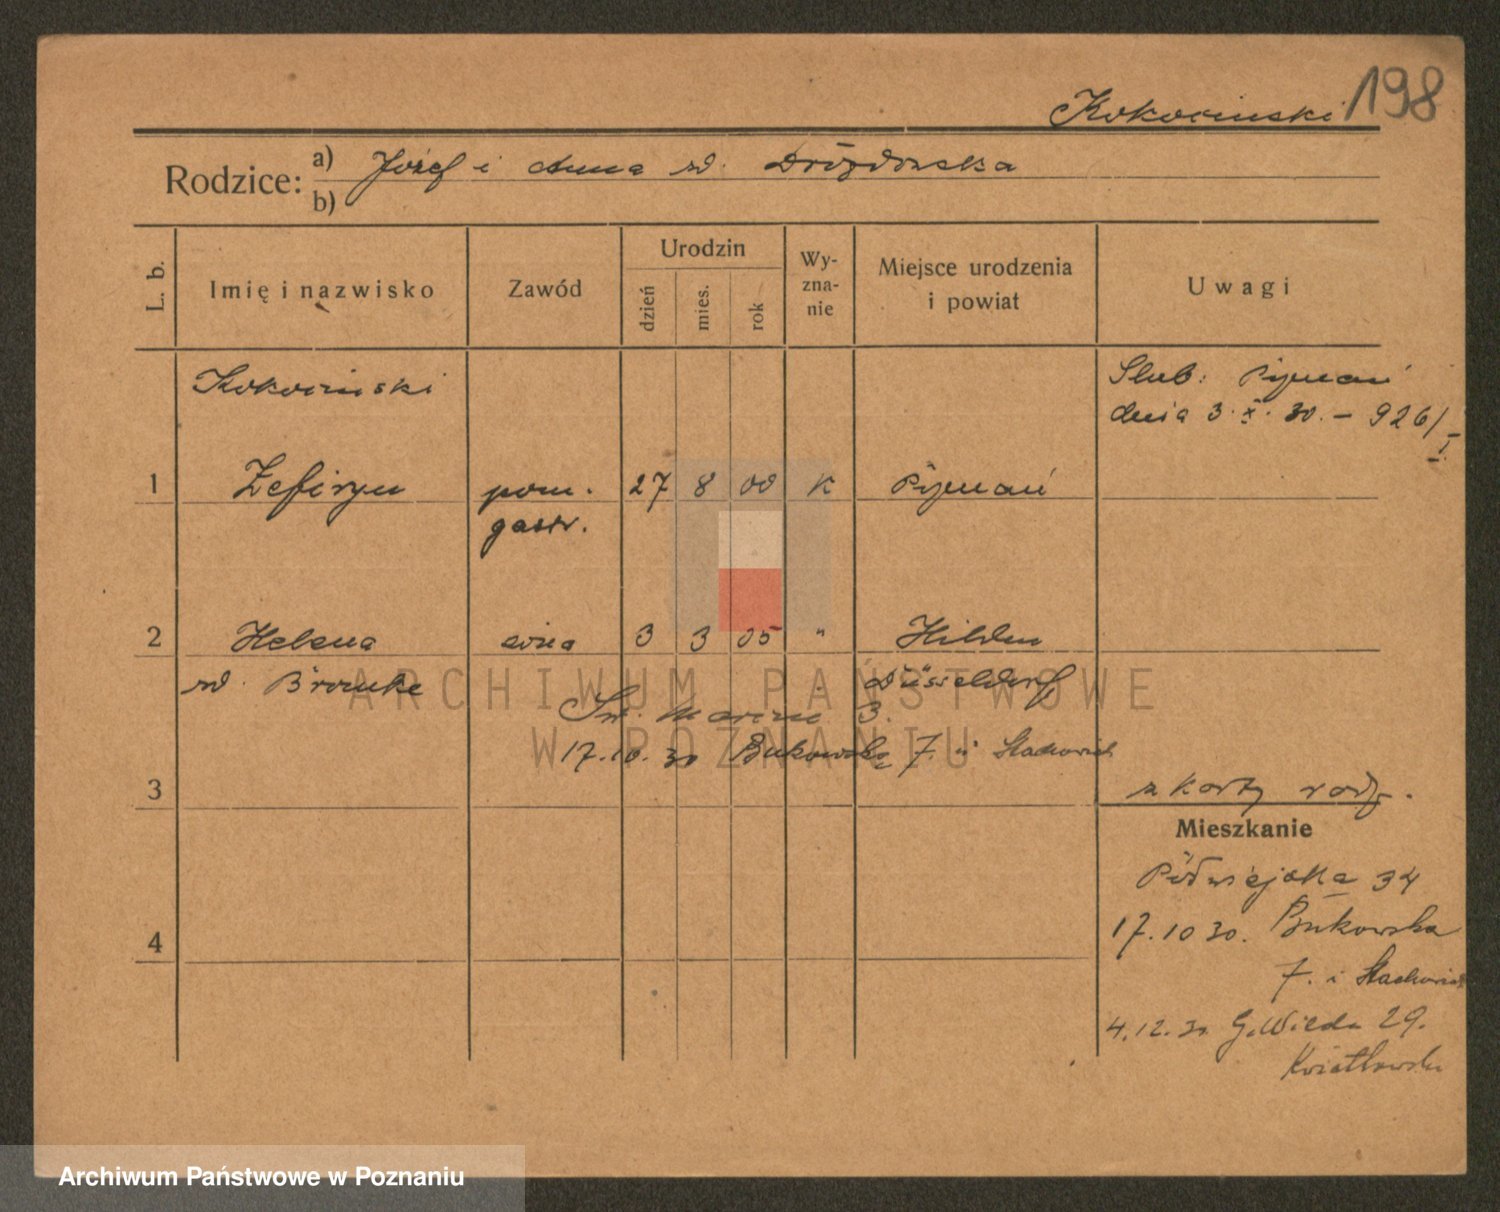 198
Kokociński
Rodzice:
a) Józef i Anna zd. Drózdowska
b)
L. b.
Imię i nazwisko
Zawód
Urodzin
dzień
mies.
rok
Wy-
zna-
nie
Miejsce urodzenia
i powiat
Uwagi
Kokociński
Slub: Poznań
dnia 3. X. 30. – 926/I.
1 Zefiryn pom. 27 8 00 K Poznań
gastr.
2 Helena 3 3 05 " Hilden
zd. Düsseldorf
Św. Marcin 3.
17.10.30 Bukowska 7.
3
z karty rodz.
Mieszkanie
Półwiejska 34
17.10 30. Bukowska
7. i
4
4.12.30 G. Wilda 29.
Kwiatkowski
ARCHIWUM PAŃSTWOWE
W POZNANIU
Archiwum Państwowe w Poznaniu